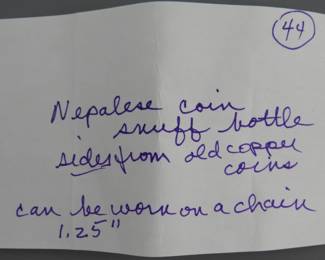 44
Nepalese coin
snuff bottle
sides from old copper
coins
can be worn on a chain
1.25"